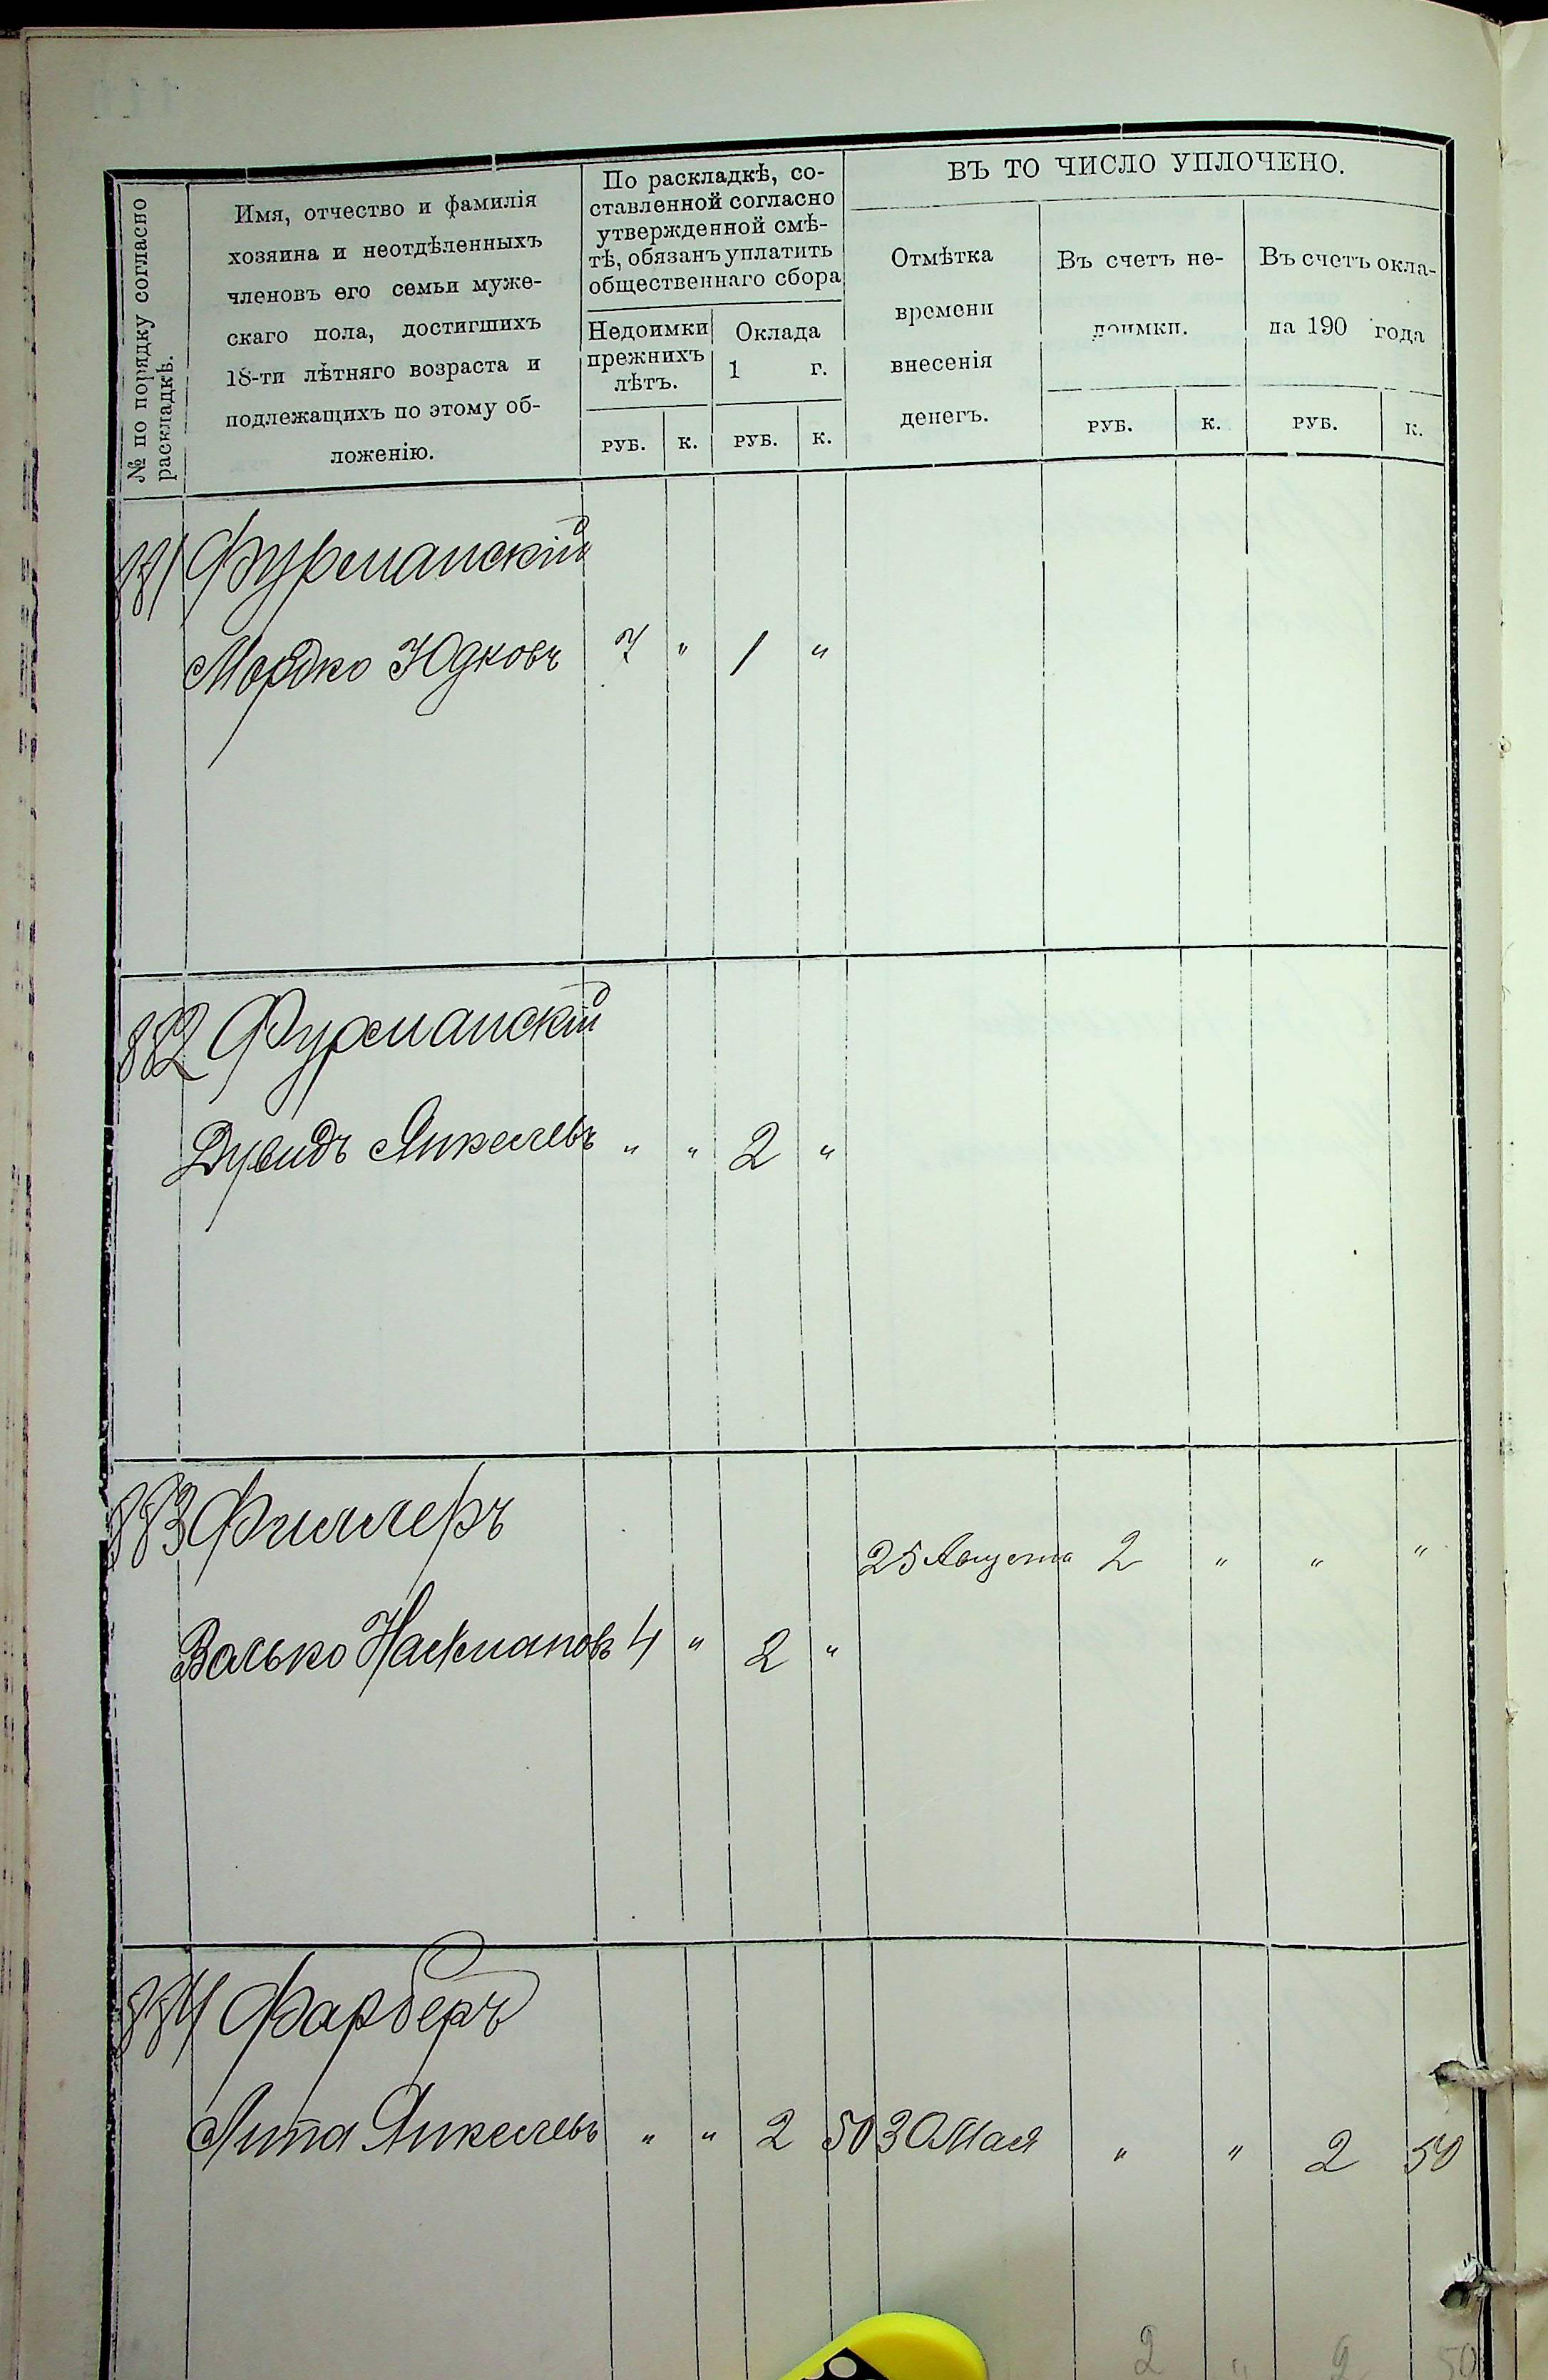 № по порядку согласно
раскладкѣ.
Имя, отчество и фамилія
хозяина и неотдѣленныхъ
членовъ его семьи муже-
скаго пола, достигшихъ
18-ти лѣтняго возраста и
подлежащихъ по этому об-
ложенію.
По раскладкѣ, со-
ставленной согласно
утвержденной смѣ-
тѣ, обязанъ уплатить
общественнаго сбора
Недоимки
прежнихъ
лѣтъ.
Оклада
1 г.
РУБ. К. РУБ. К.
ВЪ ТО ЧИСЛО УПЛОЧЕНО.
Отмѣтка
времени
внесенія
денегъ.
Въ счетъ не-
доимки.
Въ счетъ окла-
да 190 года
РУБ. К. РУБ. К.
881 Фурманскій
Мордко Юдковъ 7 " 1 "
882 Фурманскій
Дувидъ Янкелевъ " " 2 "
883 Филлеръ
25 Августа 2 " " "
Волько Нахмановъ 4 " 2 "
884 Фарберъ
Липа Янкелевъ " " 2 50 30 Мая " " 2 50
2 " 2 50